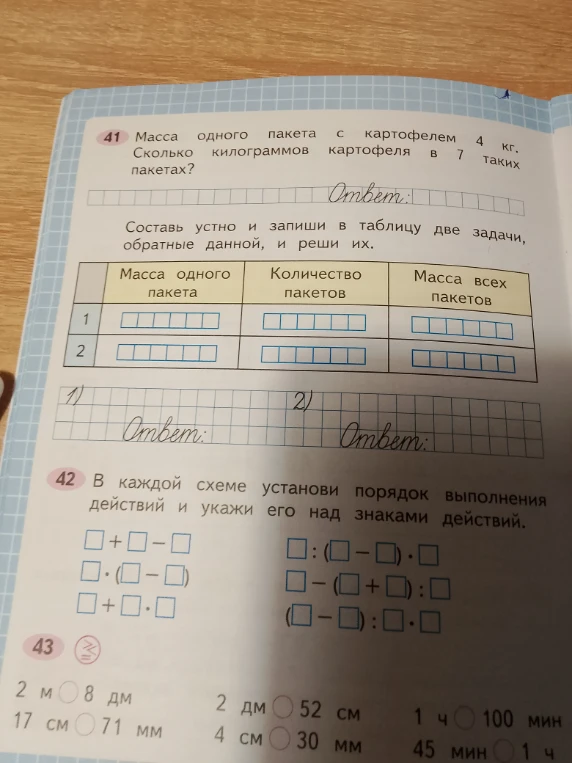 41 Масса одного пакета с картофелем 4 кг.
Сколько килограммов картофеля в 7 таких
пакетах?
Ответ:
Составь устно и запиши в таблицу две задачи,
обратные данной, и реши их.
Масса одного пакета Количество пакетов Масса всех пакетов
1
2
1) 2)
Ответ: Ответ:
42 В каждой схеме установи порядок выполнения
действий и укажи его над знаками действий.
□ + □ − □ □ : (□ − □) · □
□ · (□ − □) □ − (□ + □) : □
□ + □ · □ (□ − □) : □ · □
43
2 м ○ 8 дм 2 дм ○ 52 см 1 ч ○ 100 мин
17 см ○ 71 мм 4 см ○ 30 мм 45 мин ○ 1 ч